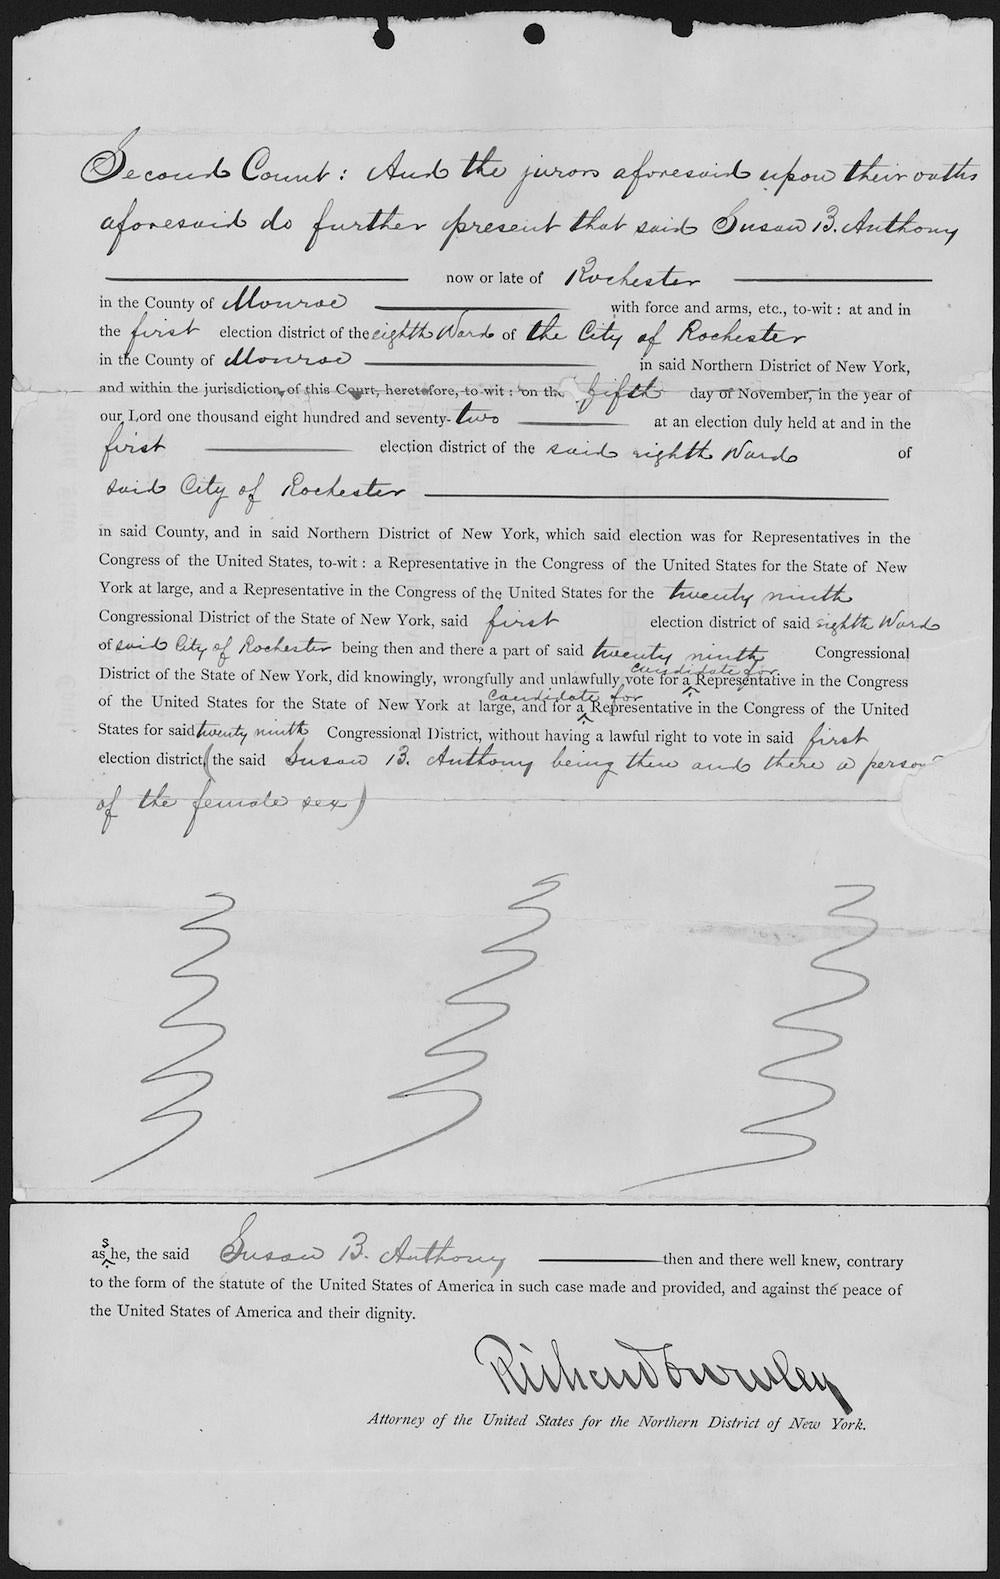 Second Count: And the jurors aforesaid upon their oaths
aforesaid do further present that said Susan B. Anthony
now or late of Rochester
in the County of Monroe with force and arms, etc., to-wit: at and in
the first election district of the eighth Ward of the City of Rochester
in the County of Monroe in said Northern District of New York,
and within the jurisdiction of this Court, heretofore, to-wit: on the fifth day of November, in the year of
our Lord one thousand eight hundred and seventy-two at an election duly held at and in the
first election district of the said eighth Ward of
said City of Rochester
in said County, and in said Northern District of New York, which said election was for Representatives in the
Congress of the United States, to-wit: a Representative in the Congress of the United States for the State of New
York at large, and a Representative in the Congress of the United States for the twenty ninth
Congressional District of the State of New York, said first election district of said eighth Ward
of said City of Rochester being then and there a part of said twenty ninth Congressional
candidate for
District of the State of New York, did knowingly, wrongfully and unlawfully vote for a ‸ Representative in the Congress
candidate for
of the United States for the State of New York at large, and for a ‸ Representative in the Congress of the United
States for said twenty ninth Congressional District, without having a lawful right to vote in said first
election district, (the said Susan B. Anthony being then and there a person
of the female sex)
as she, the said Susan B. Anthony then and there well knew, contrary
to the form of the statute of the United States of America in such case made and provided, and against the peace of
the United States of America and their dignity.
Richard Crowley
Attorney of the United States for the Northern District of New York.